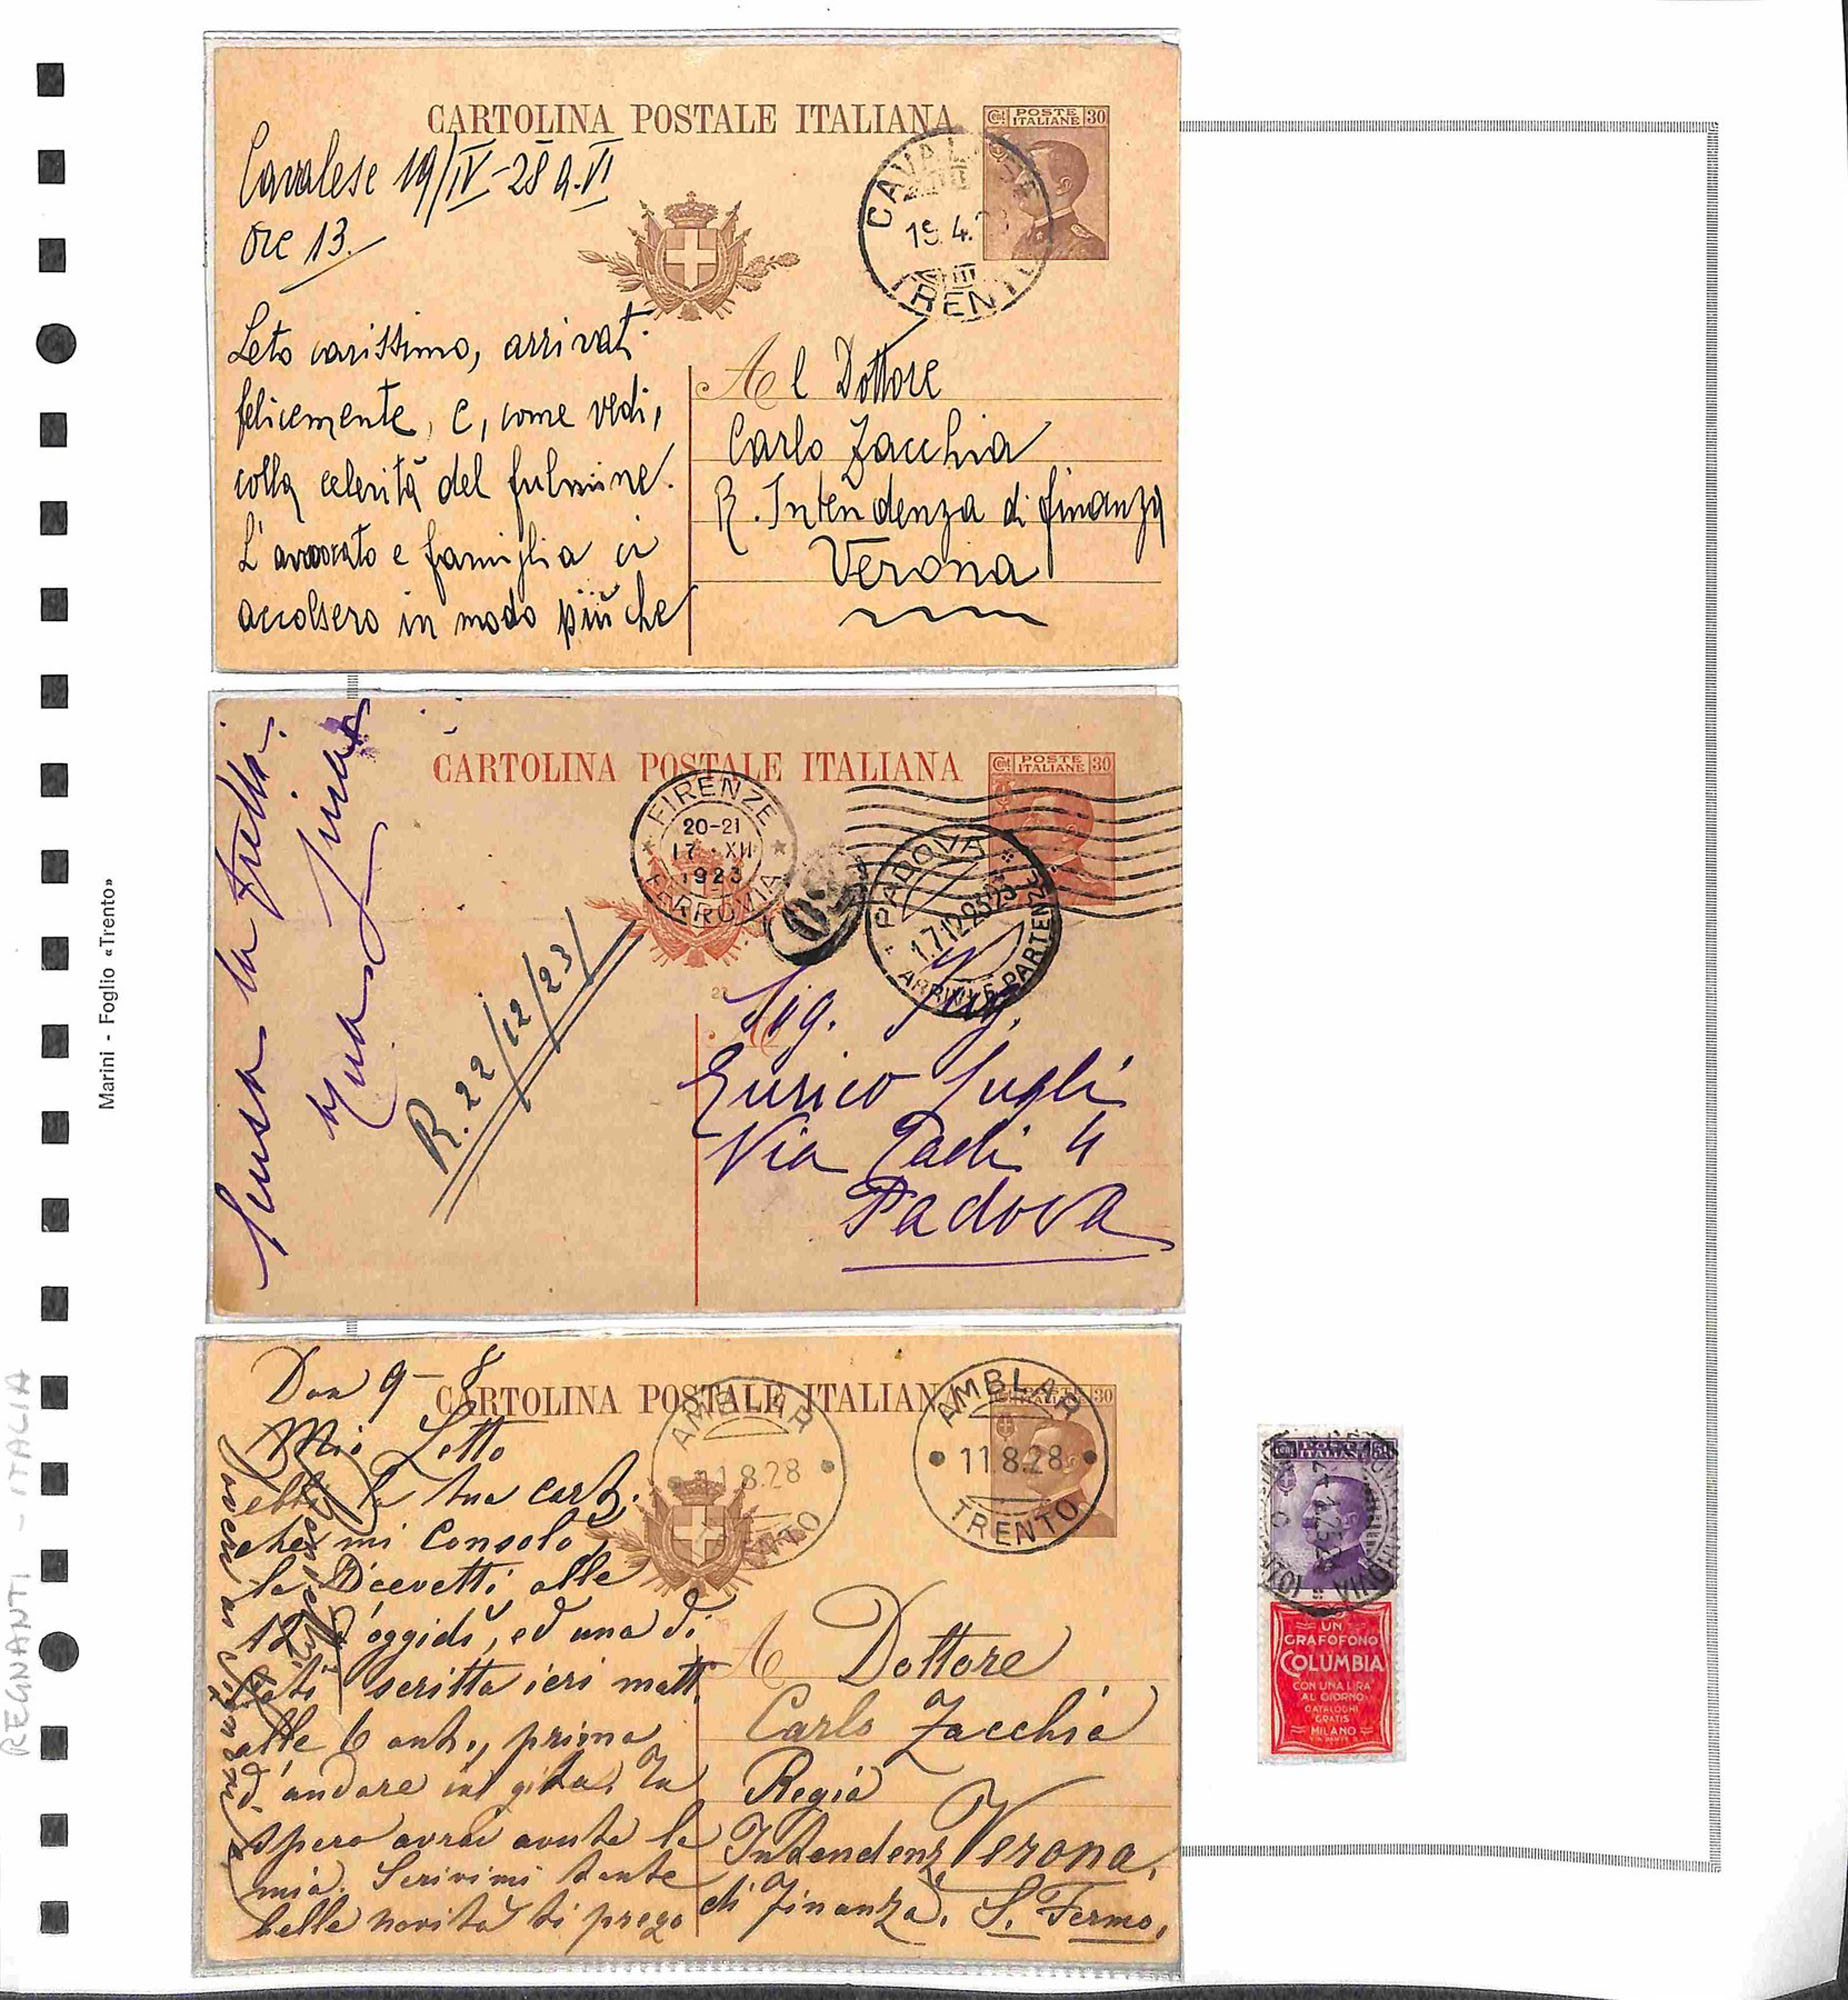 CARTOLINA POSTALE ITALIANA
Cent POSTE ITALIANE 30
CAVALESE
19.4.28
TRENTO
Cavalese 19/IV-28 a. VI
Ore 13.
Leto carissimo, arrivati
felicemente, e, come vedi,
colla celerità del fulmine.
L'avvocato e famiglia ci
accolsero in modo più che
Al Dottore
Carlo Zacchia
R. Intendenza di finanza
Verona
CARTOLINA POSTALE ITALIANA
Cent POSTE ITALIANE 30
FIRENZE
20-21
17 XII
1923
FERROVIA
PADOVA
17.12.23
ARRIVI E PARTENZE
Scusa la fretta.
R. 22/12/23/
Sig. Ing.
Enrico
Via 4
Padova
CARTOLINA POSTALE ITALIANA
30
AMBLAR
11.8.28
TRENTO
AMBLAR
11.8.28
TRENTO
Don 9-8
Mio Letto
ebbi la tua cart.
che mi consolò,
la ricevetti alle
12 d'oggidì, ed una di
scritta ieri matt.
alle 6 ant., prima
d'andare in gita. Tu
spero avrai avuta la
mia. Scrivimi tante
belle novità ti prego
A Dottore
Carlo Zacchia
Regia
Intendenz Verona,
di Finanza. S. Fermo,
POSTE ITALIANE 50
UN
GRAFOFONO
COLUMBIA
CON UNA LIRA
AL GIORNO
CATALOGHI
GRATIS
MILANO
VIA DANTE 9
Marini - Foglio «Trento»
REGNANTI - ITALIA